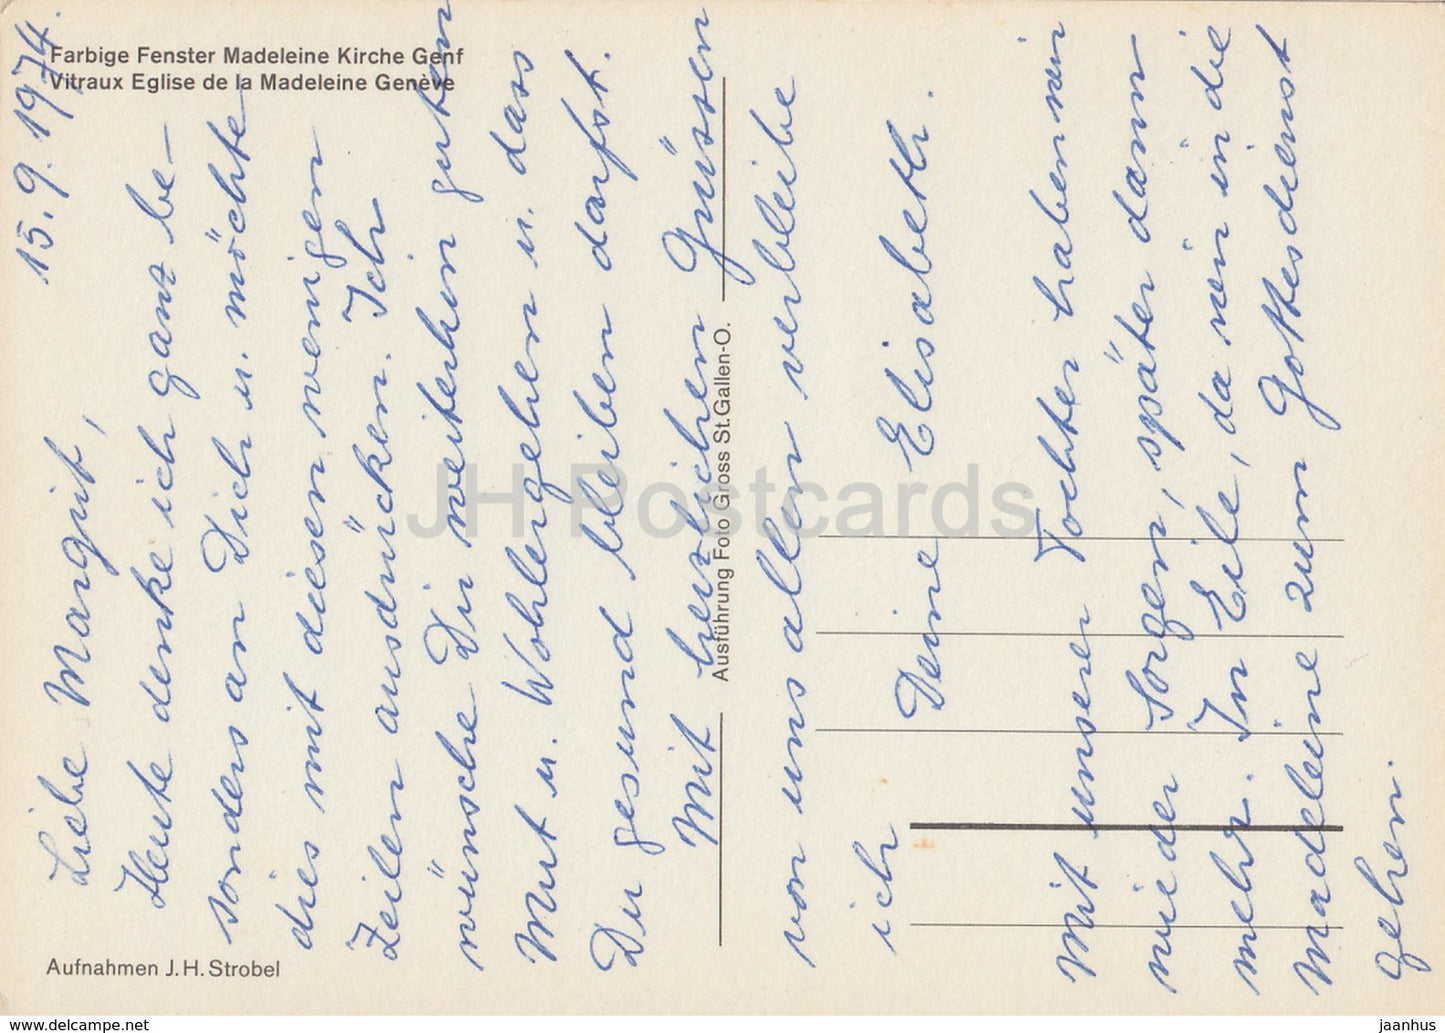 Farbige Fenster Madeleine Kirche Genf
Vitraux Eglise de la Madeleine Genève
15.9.1974.
Liebe Margrit,
Heute denke ich ganz be-
sonders an Dich u. möchte
dies mit diesen wenigen
Zeilen ausdrücken. Ich
wünsche Dir weiterhin guten
Mut u. Wohlergehen u. dass
Du gesund bleiben darfst.
Mit herzlichen Grüssen
von uns allen verbleibe
ich
Deine Elisabeth.
Mit unserer Tochter haben wir
wieder Sorgen, später dann
mehr. In Eile, da wir in die
Madeleine zum Gottesdienst
gehen.
Ausführung Foto Gross St. Gallen-O.
Aufnahmen J.H. Strobel
JH Postcards
www.delcampe.net
jaanhus